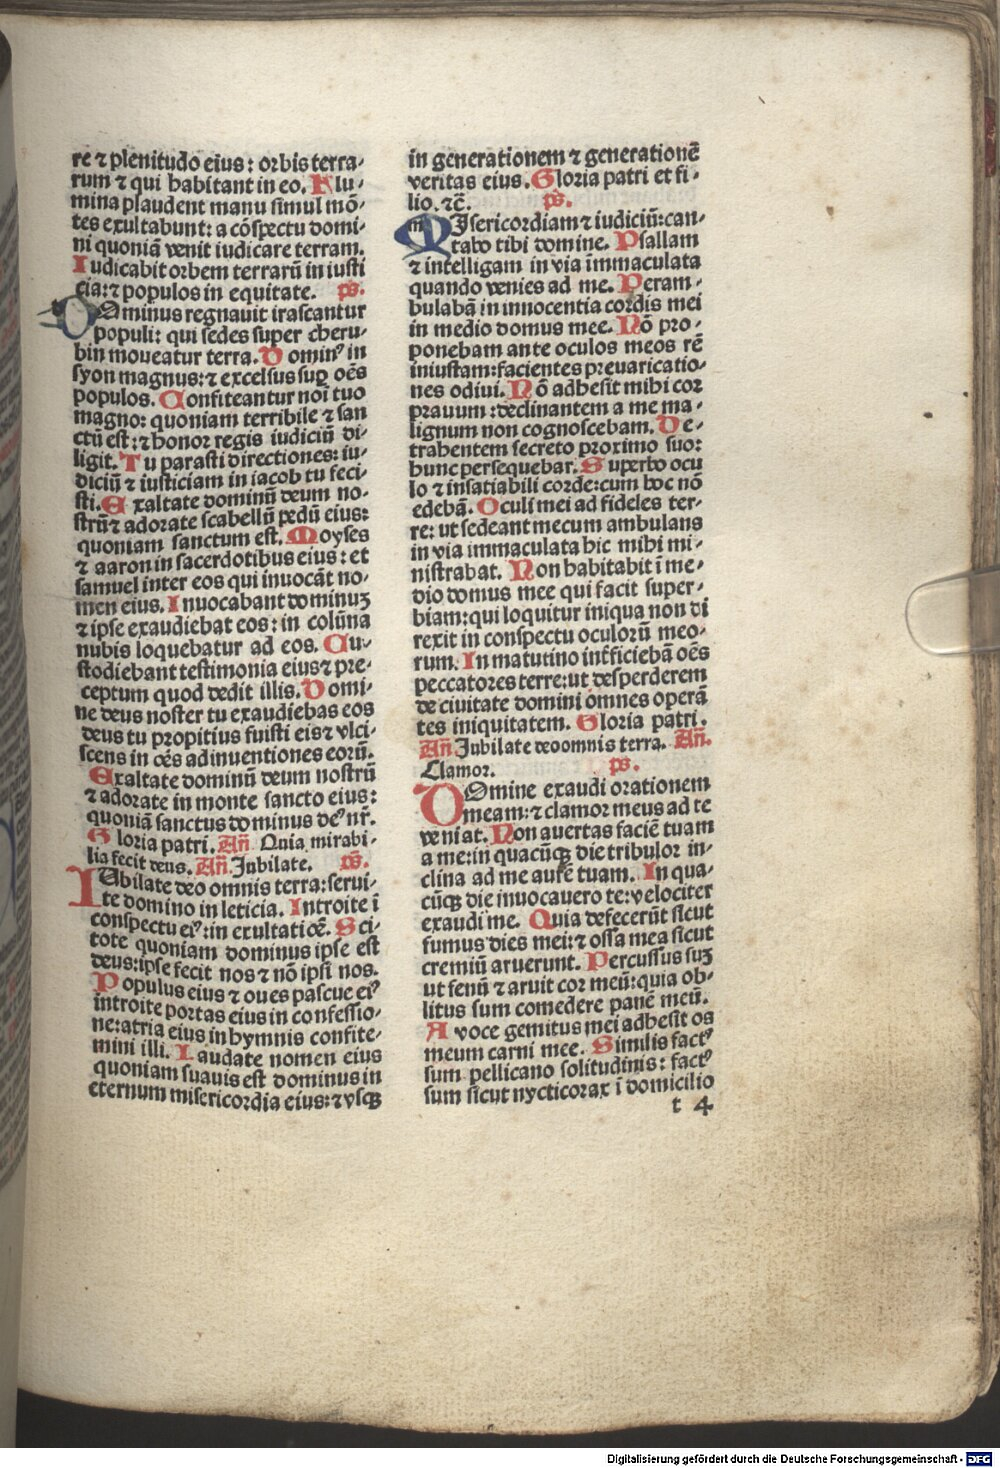 re ⁊ plenitudo eius: orbis terra-
rum ⁊ qui habitant in eo. Flu-
mina plaudent manu simul mō-
tes exultabunt: a cōspectu domi-
ni quoniā venit iudicare terram.
Iudicabit orbem terrarū in iusti
cia: ⁊ populos in equitate. ps.
DOminus regnauit irascantur
populi: qui sedes super cheru-
bin moueatur terra. Dominꝰ in
syon magnus: ⁊ excelsus suꝑ oēs
populos. Confiteantur noī tuo
magno: quoniam terribile ⁊ san
ctū est: ⁊ honor regis iudiciū di-
ligit. Tu parasti directiones: iu-
diciū ⁊ iusticiam in iacob tu feci-
sti. Exaltate dominū deum no-
strū ⁊ adorate scabellū pedū eius:
quoniam sanctum est. Moyses
⁊ aaron in sacerdotibus eius: et
samuel inter eos qui inuocāt no-
men eius. Inuocabant dominuꝫ
⁊ ipse exaudiebat eos: in colūna
nubis loquebatur ad eos. Cu-
stodiebant testimonia eius ⁊ pre-
ceptum quod dedit illis. Domi-
ne deus noster tu exaudiebas eos
deus tu propitius fuisti eis ⁊ vlci-
scens in oēs adinuentiones eorū.
Exaltate dominū deum nostrū
⁊ adorate in monte sancto eius:
quoniā sanctus dominus deꝰ nr̄.
Gloria patri. Añ. Quia mirabi-
lia fecit deus. Añ. Jubilate. ps.
IUbilate deo omnis terra: serui-
te domino in leticia. Introite ī
conspectu eiꝰ: in exultatiōe. Sci-
tote quoniam dominus ipse est
deus: ipse fecit nos ⁊ nō ipsi nos.
Populus eius ⁊ oues pascue eiꝰ
introite portas eius in confessio-
ne: atria eius in hymnis confite-
mini illi. Laudate nomen eius
quoniam suauis est dominus in
eternum misericordia eius: ⁊ vsqꝫ
in generationem ⁊ generationē
veritas eius. Gloria patri et fi-
lio. ⁊c̄. ps.
MIsericordiam ⁊ iudiciū: can-
tabo tibi domine. Psallam
⁊ intelligam in via īmmaculata
quando venies ad me. Peram-
bulabā in innocentia cordis mei
in medio domus mee. Nō pro-
ponebam ante oculos meos rē
iniustam: facientes preuaricatio-
nes odiui. Nō adhesit mihi cor
prauum: declinantem a me ma-
lignum non cognoscebam. De-
trahentem secreto proximo suo:
hunc persequebar. Superbo ocu
lo ⁊ insatiabili corde: cum hoc nō
edebā. Oculi mei ad fideles ter-
re: ut sedeant mecum ambulans
in via immaculata hic mihi mi-
nistrabat. Non habitabit ī me-
dio domus mee qui facit super-
biam: qui loquitur iniqua non di
rexit in conspectu oculorū meo-
rum. In matutino int̄ficiebā oēs
peccatores terre: ut desperderem
de ciuitate domini omnes operā
tes iniquitatem. Gloria patri.
Añ Jubilate deo omnis terra. Añ.
Clamor. ps.
DOmine exaudi orationem
meam: ⁊ clamor meus ad te
veniat. Non auertas faciē tuam
a me: in quacūqꝫ die tribulor in-
clina ad me aurē tuam. In qua-
cūqꝫ die inuocauero te: velociter
exaudi me. Quia defecerūt sicut
fumus dies mei: ⁊ ossa mea sicut
cremiū aruerunt. Percussus suꝫ
ut fenū ⁊ aruit cor meū: quia ob-
litus sum comedere panē meū.
A voce gemitus mei adhesit os
meum carni mee. Similis factꝰ
sum pellicano solitudinis: factꝰ
sum sicut nycticorax ī domicilio
t 4
Digitalisierung gefördert durch die Deutsche Forschungsgemeinschaft - DFG